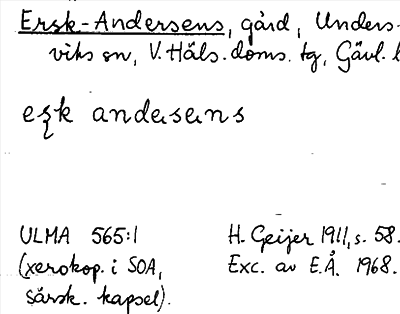 Ersk-Andersens, gård, Unders-
viks sn, V. Häls. doms. tg, Gävl. l
esk andesens
ULMA 565:1 H. Geijer 1911, s. 58.
(xerokop. i SOA, Exc. av E.Å. 1968.
särsk. kapsel).